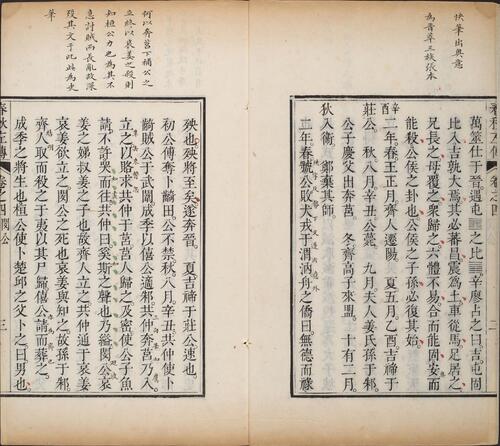 快筆出奧意
三族張本
萬筮仕于晉遇屯䷂之比䷇辛廖占之曰吉屯固
比入吉孰大焉其必蕃昌震為土車從馬足居之
兄長之母覆之眾歸之六體不易合而能固安而
能殺公侯之卦也公侯之子孫必復其始
辛酉
二年春王正月齊人遷陽 夏五月乙酉吉禘于
莊公 秋八月辛丑公薨 九月夫人姜氏孫于邾
公子慶父出奔莒 冬齊高子來盟 十有二月
狄入衛 鄭棄其師
二年春虢公敗犬戎于渭汭舟之僑曰無德而祿
何以奔莒下補公之
立終以哀姜之殺則
知桓公力也為其不
急討賊而長亂故深
沒其文于此此為史
筆
殃也殃將至矣遂奔晉 夏吉禘于莊公速也
初公傅奪卜齮田公不禁秋八月辛丑共仲使卜
齮賊公于武闈成季以僖公適邾共仲奔莒乃入
立之以賂求共仲于莒莒人歸之及密使公子魚
請不許哭而往共仲曰奚斯之聲也乃縊閔公哀
姜之娣叔姜之子也故齊人立之共仲通于哀姜
哀姜欲立之閔公之死也哀姜與知之故孫于邾
齊人取而殺之于夷以其尸歸僖公請而葬之
成季之將生也桓公使卜楚丘之父卜之曰男也
春秋左傳 卷之四 閔公 三